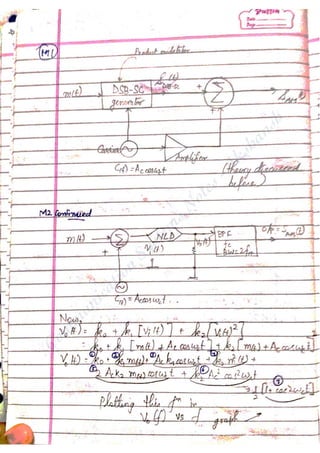 M1
Product modulator
m(t)
DSB-SC
generator
+
Σ
+
Carrier
Amplifier
C(t) = Ac cosωct
(theory discussed
before)
M2 continued
m(t)
+
Σ
NLD
V1(t)
V0(t)
BPF
fc
BW=2fm
+
C(t) = Ac cosωct
Now,
V0(t) = k0 + k1 [V1(t)] + k2 [V1(t)²]
= k0 + k1 [m(t) + Ac cosωct] + k2 [m(t) + Ac cosωct]²
V0(t) = k0 + k1 m(t) + Ac k1 cosωct + k2 m²(t) +
2 Ac k2 m(t) cosωct + k2 Ac² cos²ωct
½ [1 + cos2ωct]
Plotting this fn in
V0(f) vs f graph